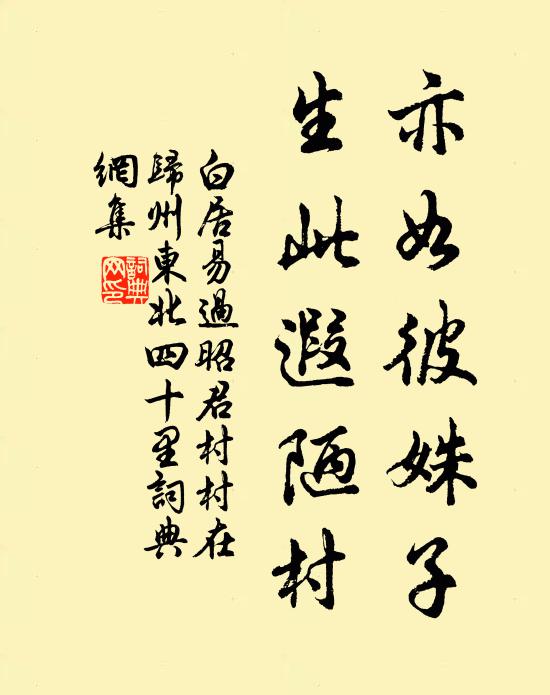 亦如彼姝子
生此遐陋村
白居易過昭君村村在
歸州東北四十里詞典
網集
詞典
网印